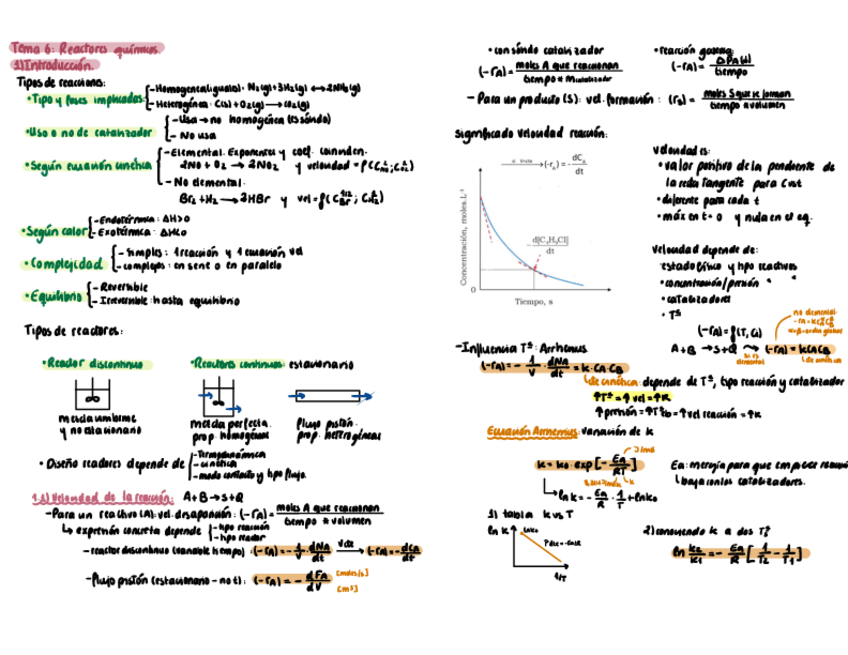 Tema 6: Reactores químicos.
1) Introducción.
Tipos de reacciones:
• Tipo y fases implicadas
- Homogénea (igual as): N2(g) + 3H2(g) ↔ 2NH3(g)
- Heterogénea: C(s) + O2(g) → CO2(g)
• Uso o no de catalizador
- Usa → no homogénea (es sólido)
- No usa
• Según ecuación cinética
- Elemental. Exponentes y coef. coinciden.
2NO + O2 → 2NO2 y velocidad = f(C²NO; CO2)
- No elemental.
Br2 + H2 → 2HBr y vel = f(
• Según calor
- Endotérmica: ΔH>0
- Exotérmica: ΔH<0
• Complejidad
- simples: 1 reacción y 1 ecuación vel
- complejos: en serie o en paralelo
• Equilibrio
- Reversible
- Irreversible: hasta equilibrio
Tipos de reactores:
• Reactor discontinuo
• Reactores continuos: estacionario
mezcla uniforme
y no estacionario
mezcla perfecta.
prop. homogéneas
flujo pistón.
prop. heterogéneas
• Diseño readores depende de
- Termodinámica
- cinética
- modo contacto y tipo flujo.
1.1) Velocidad de la reacción: A+B → S+Q
- Para un reactivo (A): vel. desaparición: (-rA) = moles A que reaccionan / tiempo * volumen
↳ expresión concreta depende
- tipo reacción
- tipo reactor
- reactor discontinuo (variable tiempo): (-rA) = -1/V · dNA/dt V cte → (-rA) = -dCA/dt
- Flujo pistón (estacionario - no t): (-rA) = - dFA/dV [moles/s] [m³]
• con sólido catalizador
(-rA) = moles A que reaccionan / tiempo * m catalizador
• reacción gaseosa:
(-rA) = ΔPA(t) / tiempo
- Para un producto (S): vel. formación: (rS) = moles S que se forman / tiempo * volumen
Significado velocidad reacción:
(-rA) = -dCA/dt
Concentración, moles.L⁻¹
d[C4H9Cl]/dt
0
Tiempo, s
Velocidad es:
• valor positivo de la pendiente de
la recta tangente para C vs t
• diferente para cada t
• máx en t=0 y nula en el eq.
Velocidad depende de:
estado físico y tipo reactivos
• concentración/presión
• catalizadores
• Tª
(-rA) = f(T, Ci)
no elemental
A+B → S+Q → (-rA) = kCACB
si es elemental
- Influencia Tª: Arrhenius
(-rA) = -1/V · dNA/dt = k·CA·CB
↳ cte cinética: depende de Tª, tipo reacción y catalizador
↑Tª = ↑ vel = ↑k
↑presión = ↑Tª = ↑vel reacción = ↑k
Ecuación Arrhenius: variación de k
k = k0 · exp[-Ea/RT]
J/mol
↳ ln k = -Ea/R · 1/T + ln k0
Ea: energía para que empiece reacción
↳ baja con los catalizadores.
1) tabla k vs T
ln k
ln k0
1/T
2) conociendo k a dos Tª
ln k2/k1 = -Ea/R [1/T2 - 1/T1]